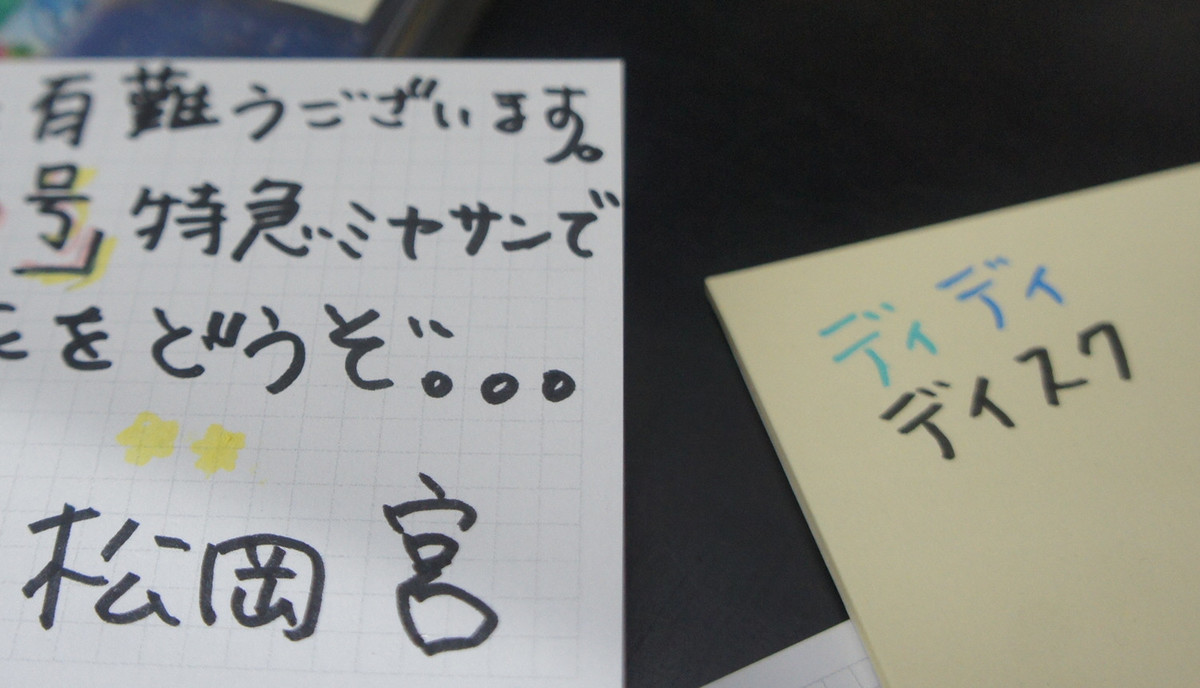 有難うございます。
号」特急ミヤサンで
をどうぞ。。。
松岡宮
ディディ
ディスク